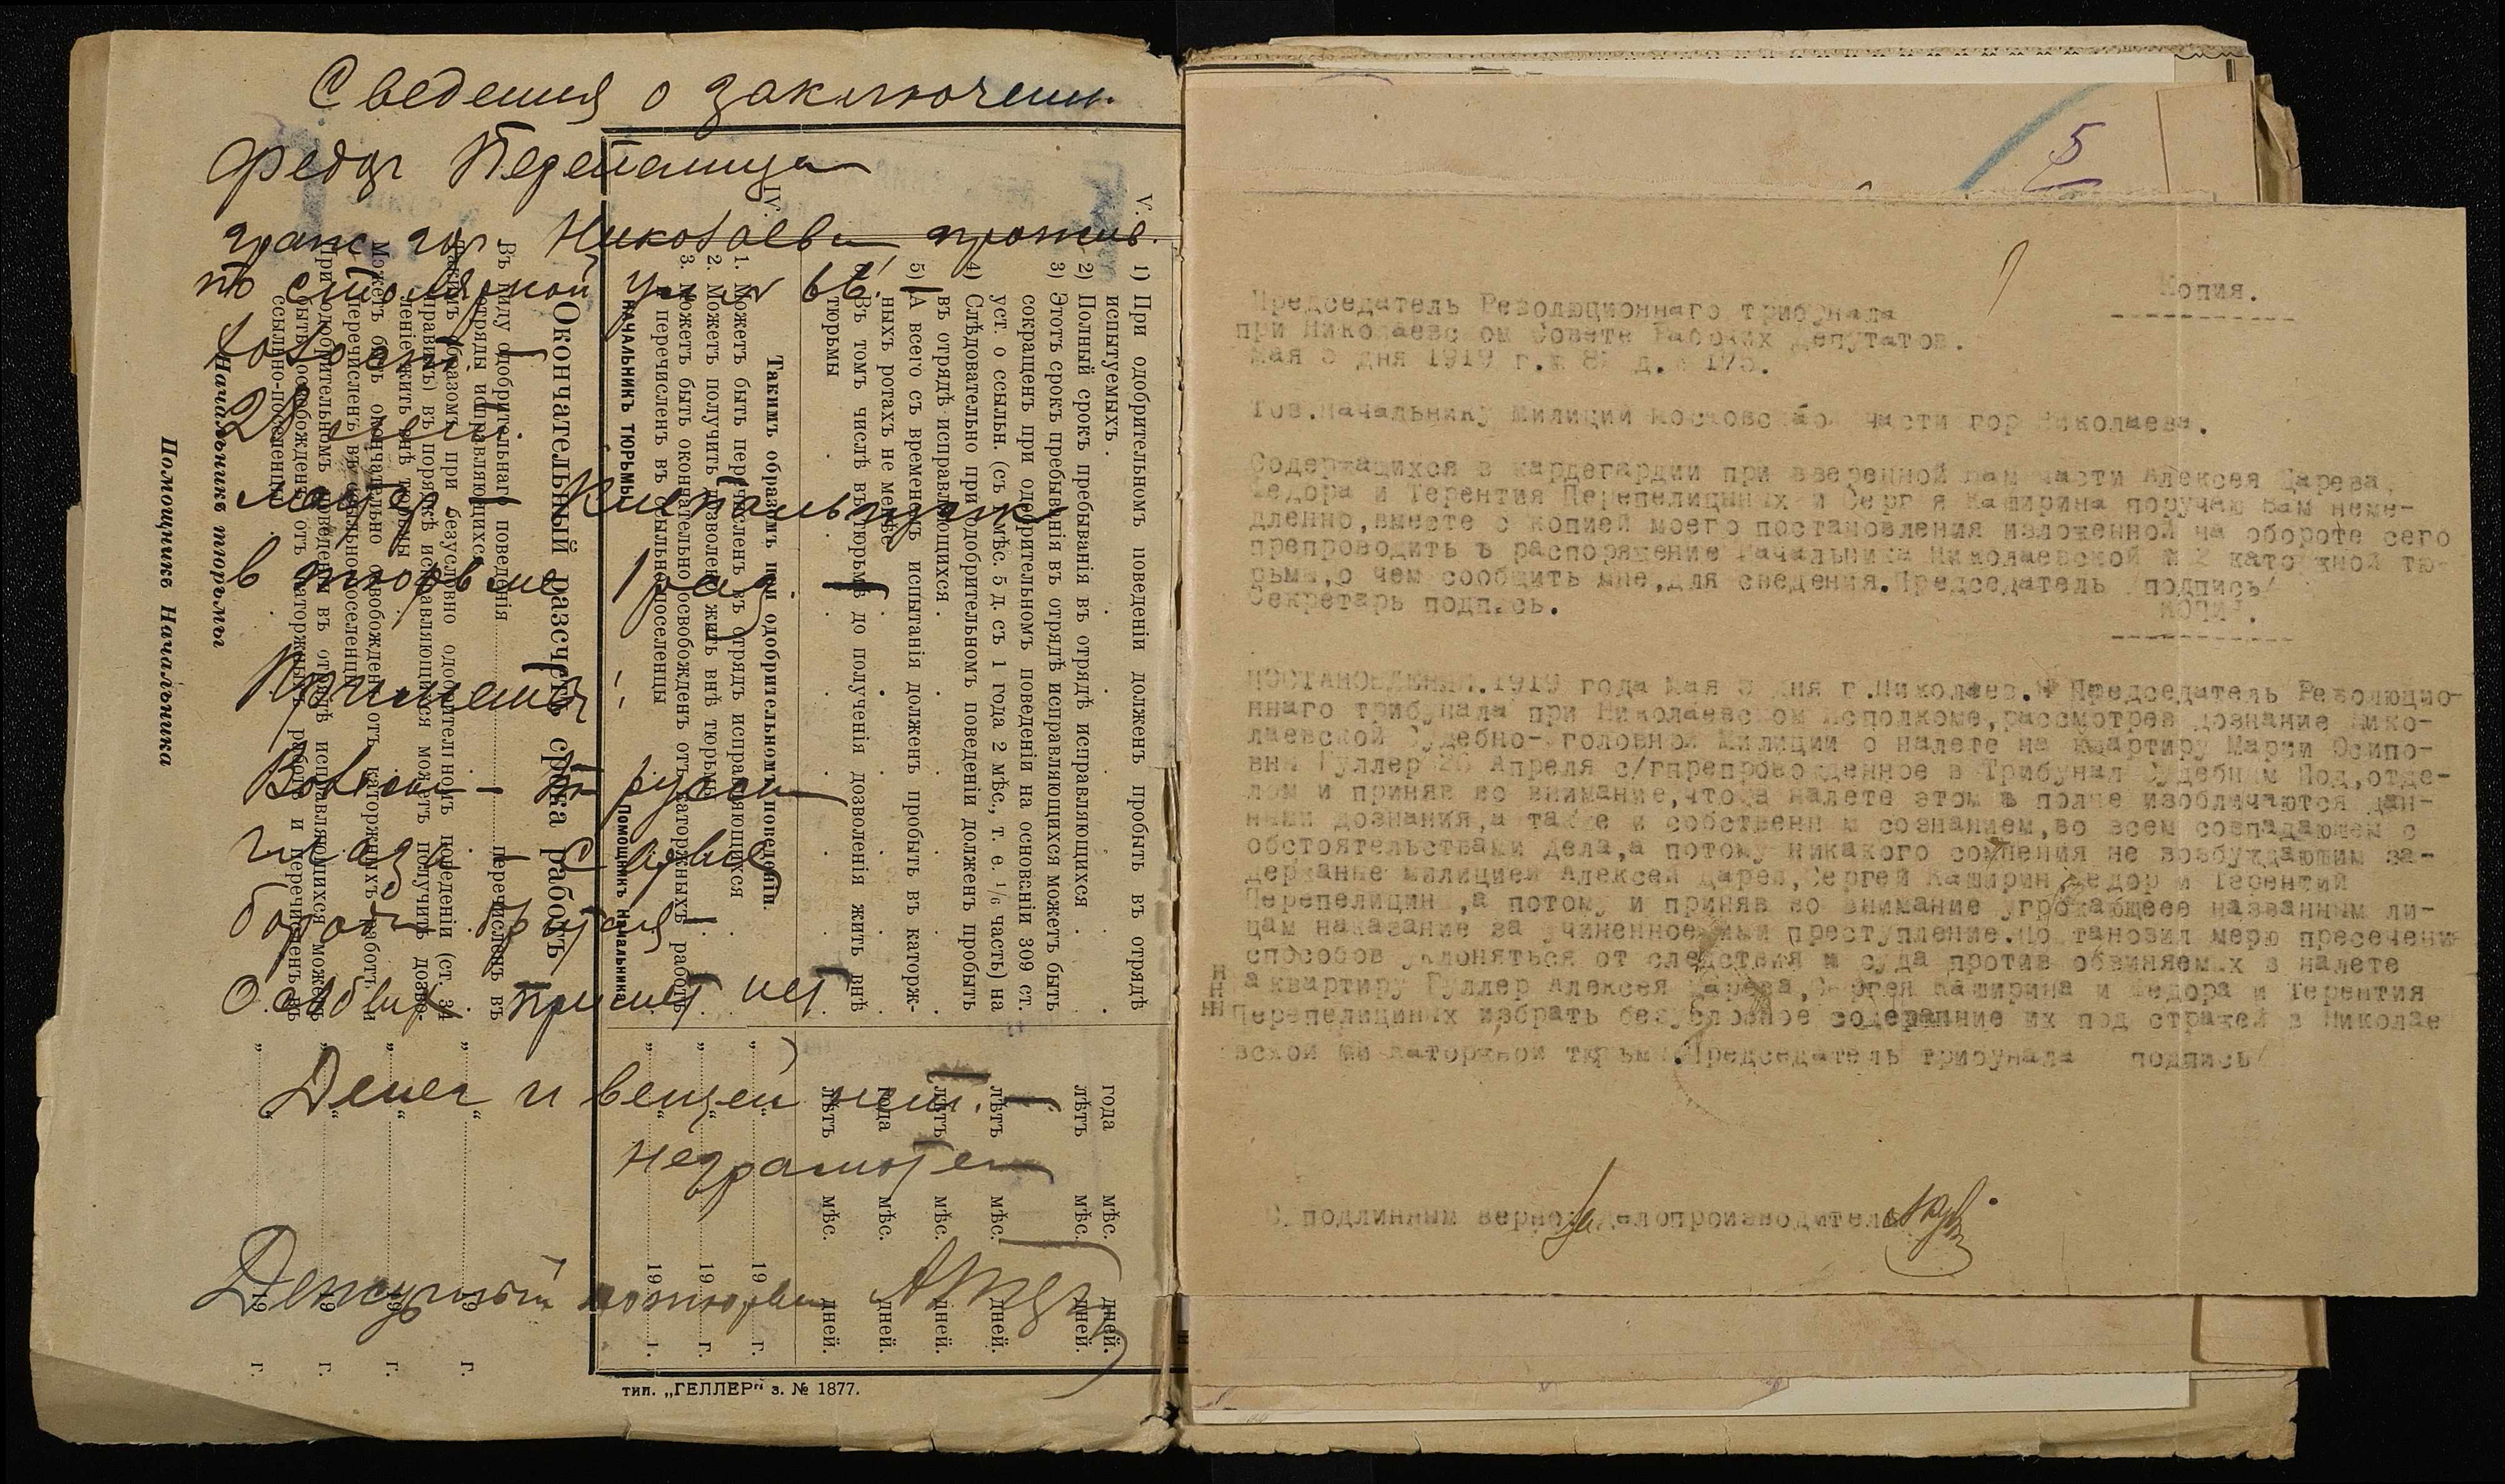 Сведения о заключени.
Федор Перепелица
гор. Николаева прожив.
по столярной улиц 66.
холост —
28 лет.
в тюрьме 1 раз.
Приметы:
Волосы — т. русые
глаза — серые
борода бритая —
Особых примет нет
Денег и вещей нет. —
неграмотен
Дежурный
V.
1) При одобрительномъ поведеніи долженъ пробыть въ отрядѣ
испытуемыхъ . года мѣс. дней.
2) Полный срокъ пребыванія въ отрядѣ исправляющихся лѣтъ мѣс. дней.
3) Этотъ срокъ пребыванія въ отрядѣ исправляющихся можетъ быть
сокращенъ при одобрительномъ поведеніи на основаніи 309 ст.
уст. о ссыльн. (съ мѣс. 5 д. съ 1 года 2 мѣс., т. е. 1/6 часть) на лѣтъ мѣс. дней.
4) Слѣдовательно при одобрительномъ поведеніи долженъ пробыть
въ отрядѣ исправляющихся . лѣтъ мѣс. дней.
5) А всего съ временемъ испытанія долженъ пробыть въ каторж-
ныхъ ротахъ не менѣе года мѣс. дней.
Въ томъ числѣ въ тюрьмѣ до полученія дозволенія жить внѣ
тюрьмы лѣтъ мѣс. дней.
IV.
Такимъ образомъ при одобрительномъ поведеніи.
1. Можетъ быть перечисленъ въ отрядъ исправляющихся „ “ 19 г.
2. Можетъ получить дозволеніе жить внѣ тюрьмы „ “ 19 г.
3. Можетъ быть окончательно освобожденъ отъ каторжныхъ работъ
и перечисленъ въ ссыльно-поселенцы „ “ 19 г.
НАЧАЛЬНИКЪ ТЮРЬМЫ Помощникъ Начальника
Окончательный разсчетъ срока работъ
Въ виду одобрительнаго поведенія перечисленъ въ
отряды исправляющихся „ “ 19 г.
Такимъ образомъ при безусловно одобрительномъ поведеніи (ст. 34
правилъ) въ порядкѣ исправляющихся можетъ получить дозво-
леніе жить внѣ тюрьмы „ “ 19 г.
Можетъ быть окончательно освобожденъ отъ каторжныхъ работъ и
перечисленъ въ ссыльно-поселенцы „ “ 19 г.
При одобрительномъ поведеніи въ отрядѣ исправляющихся можетъ
быть освобожденъ отъ каторжныхъ работъ и перечисленъ въ
ссыльно-поселенцы „ “ 19 г.
Начальникъ тюрьмы
Помощникъ Начальника
тип. „ГЕЛЛЕР“ з. № 1877.
5
Копия.
Председатель Революционнаго трибунала
при Николаевс ом Совете Рабочих Депутатов.
Мая 5 дня 1919 г.
Тов.Начальнику Милиций Московс ой части гор Николаева.
Содержащихся в кардегардии при вверенной Вам части Алексея Царева,
Федора и Терентия Перепелицыных и Серг я Каширина поручаю Вам неме-
дленно,вместе с копией моего постановления изложенной на обороте сего
препроводить в распоряжение Начальника Николаевской № 2 като жной тю-
рьмы,о чем сообщить мне,для сведения.Председатель /подпись/
Секретарь подпись.
КОПИЯ.
ПОСТАНОВЛЕНИЕ.1919 года мая 5 дня г.Николаев. Председатель Революцио-
ннаго трибунала при Николаевском Исполкоме,рассмотрев дознание Нико-
лаевской Судебно- головной Милиции о налете на квартиру Марии Осипо-
вны Гуллер 26 Апреля с/гпрепровожденное в Трибунал Судебным Под,отде-
лом и приняв во внимание,что в налете этом в полне изобличаются дан-
ными дознания,а также и собственн м сознанием,во всем совпадающем с
обстоятельствами дела,а потому никакого сомнения не возбуждающим за-
держанные милицией Алексей Царев,Сергей Каширин,Федор и Терентий
Перепелицин ,а потому и приняв во внимание угрожающеее названным ли-
цам наказание за учиненное ими преступление.По тановил мерю пресечения
способов уклоняться от следствия и суда против обвиняемых в налете
на квартиру Гуллер Алексея Царева,Сергея Каширина и Федора и Терентия
Перепелициных избрать безусловное содержание их под стражей в Николае
вской каторжной тюрьм .Председатель трибунала подпись/
С подлинным верно: Делопроизводитель